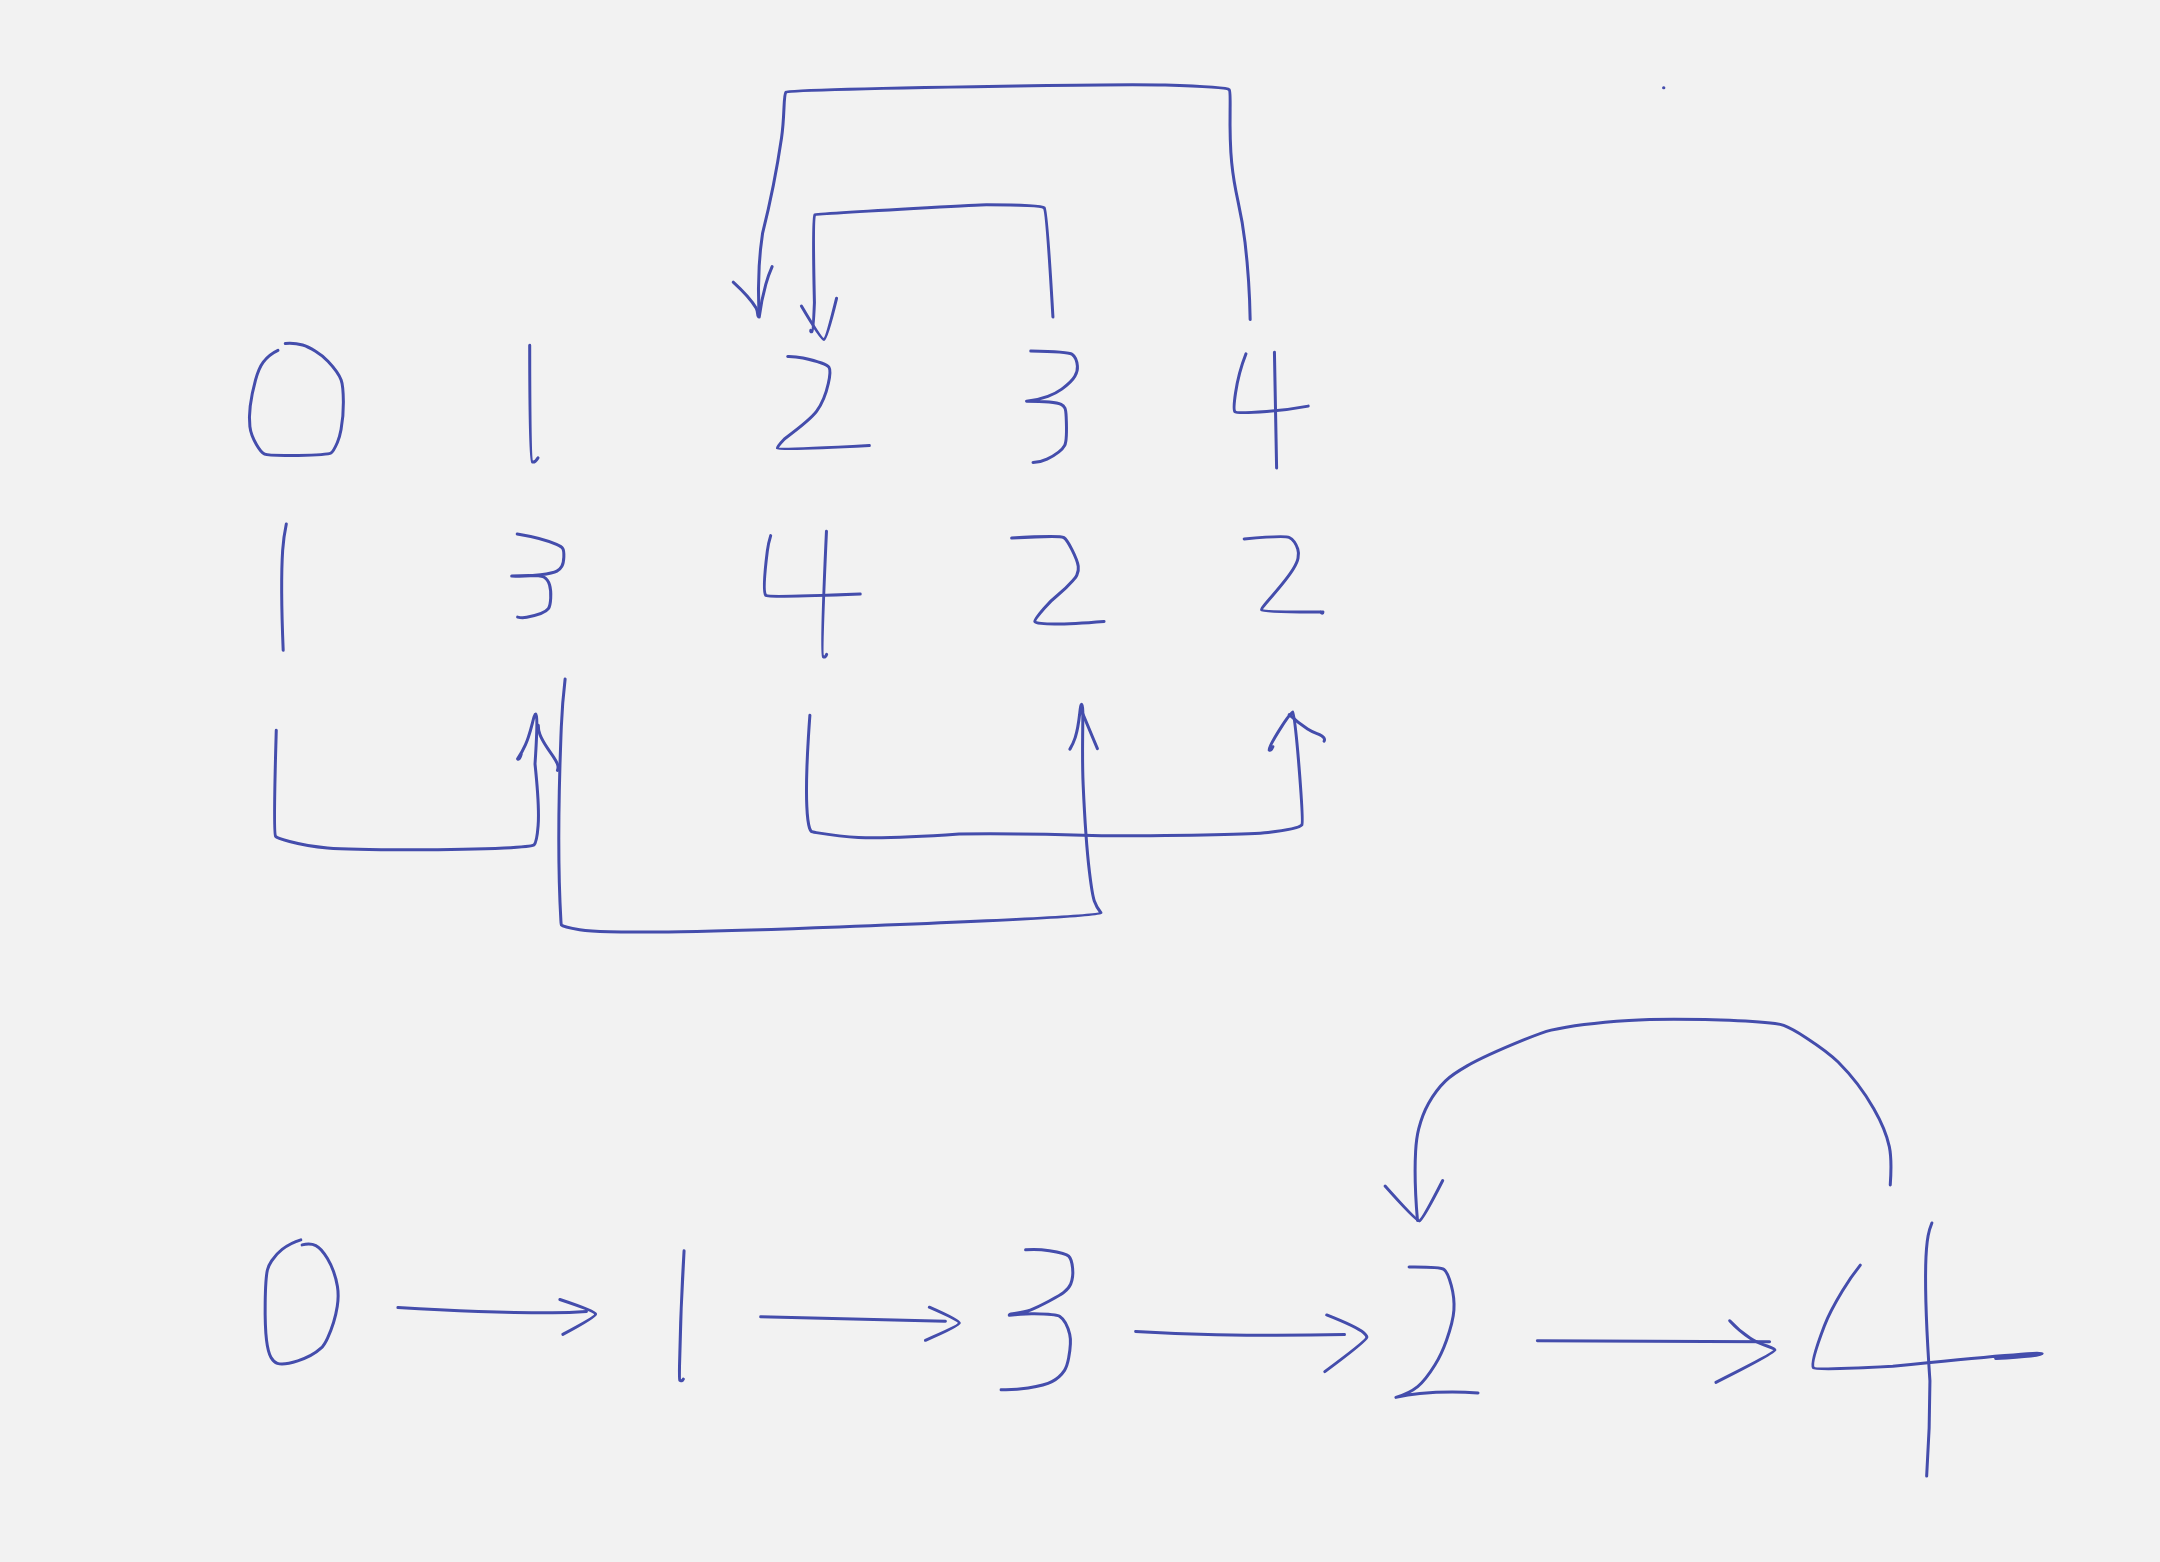 0 1 2 3 4
1 3 4 2 2
0 → 1 → 3 → 2 → 4